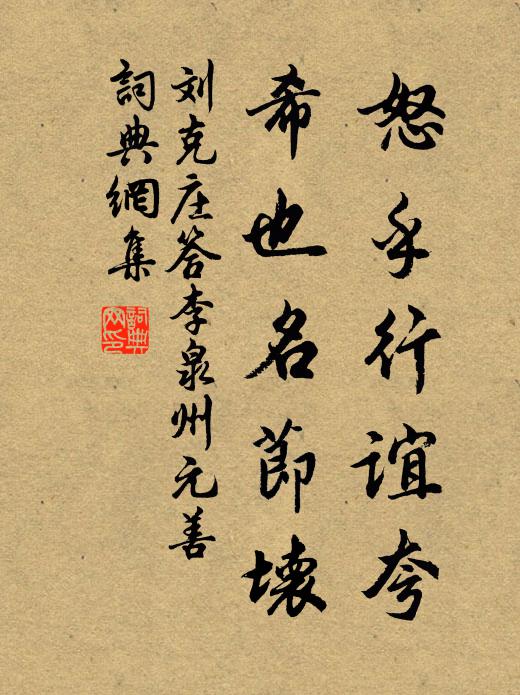 怒乎行谊夸
希也名莭壞
刘克庄答李泉州元善
詞典網集
詞典
网印